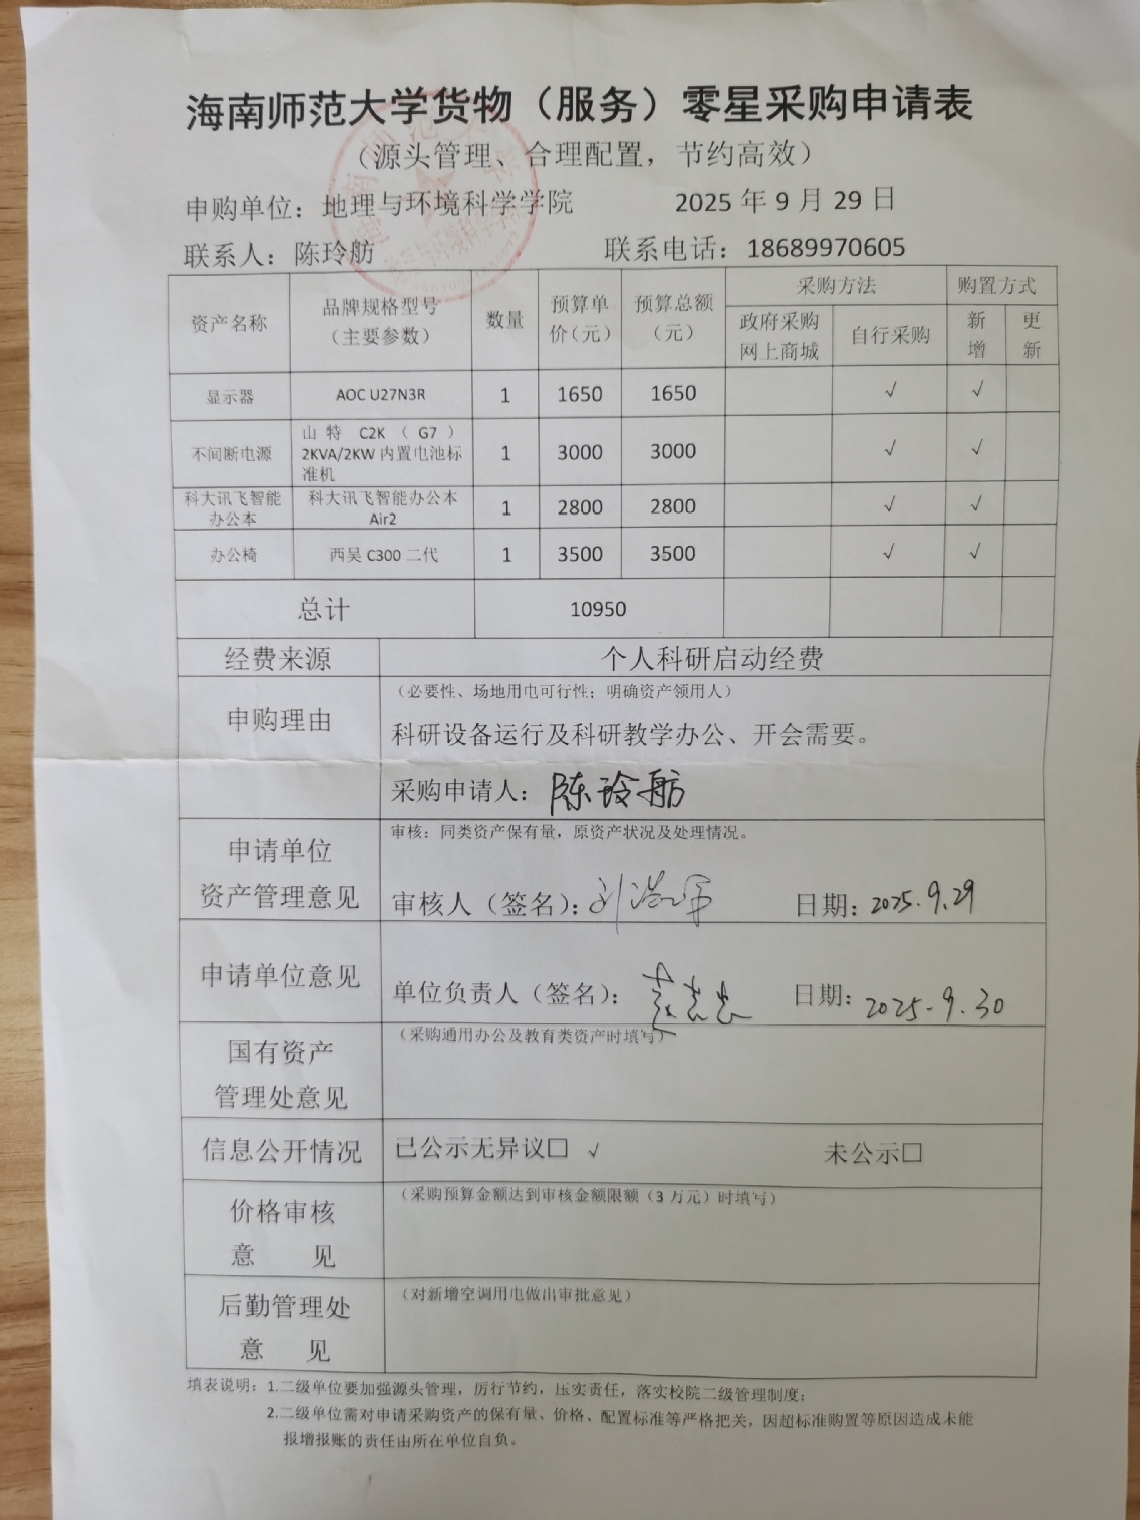 海南师范大学货物（服务）零星采购申请表
（源头管理、合理配置，节约高效）
申购单位：地理与环境科学学院 2025 年 9 月 29 日
联系人：陈玲舫 联系电话：18689970605
资产名称 品牌规格型号（主要参数） 数量 预算单价（元） 预算总额（元） 采购方法 购置方式
政府采购网上商城 自行采购 新增 更新
显示器 AOC U27N3R 1 1650 1650 √ √
不间断电源 山特 C2K（G7）2KVA/2KW 内置电池标准机 1 3000 3000 √ √
科大讯飞智能办公本 科大讯飞智能办公本 Air2 1 2800 2800 √ √
办公椅 西昊 C300 二代 1 3500 3500 √ √
总计 10950
经费来源 个人科研启动经费
申购理由 （必要性、场地用电可行性；明确资产领用人）
科研设备运行及科研教学办公、开会需要。
采购申请人：陈玲舫
申请单位
资产管理意见
审核：同类资产保有量，原资产状况及处理情况。
审核人（签名）： 日期：2025.9.29
申请单位意见 单位负责人（签名）： 日期：2025.9.30
国有资产
管理处意见
（采购通用办公及教育类资产时填写）
信息公开情况 已公示无异议□ √ 未公示□
价格审核
意 见
（采购预算金额达到审核金额限额（3 万元）时填写）
后勤管理处
意 见
（对新增空调用电做出审批意见）
填表说明：1.二级单位要加强源头管理，厉行节约，压实责任，落实校院二级管理制度；
2.二级单位需对申请采购资产的保有量、价格、配置标准等严格把关，因超标准购置等原因造成未能
报增报账的责任由所在单位自负。